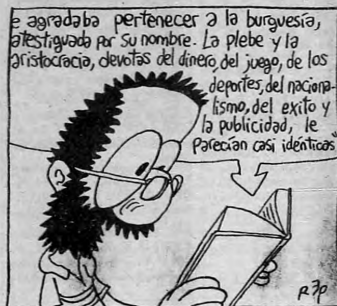 e agradaba pertenecer a la burguesía,
atestiguada por su nombre. La plebe y la
aristocracia, devotas del dinero, del juego, de los
deportes, del naciona-
lismo, del exito y
la publicidad, le
Parecían casi idénticas